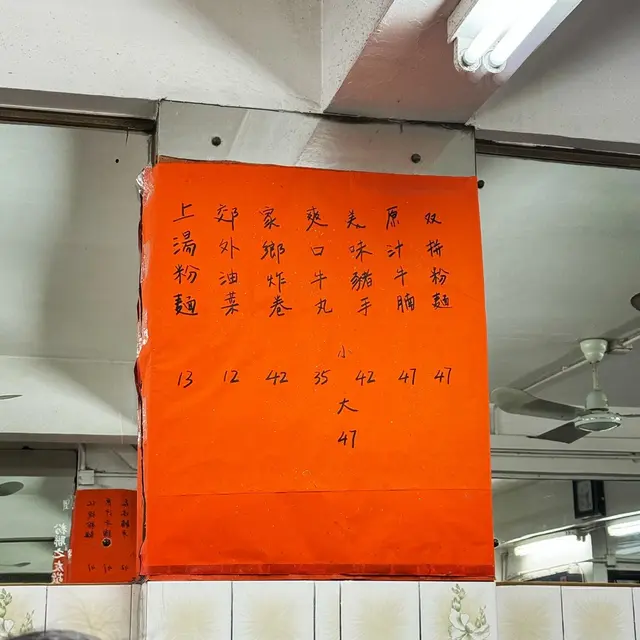 双拼粉麵 47
原汁牛腩 47
美味豬手 小 42 大 47
爽口牛丸 35
家鄉炸卷 42
郊外油菜 12
上湯粉麵 13